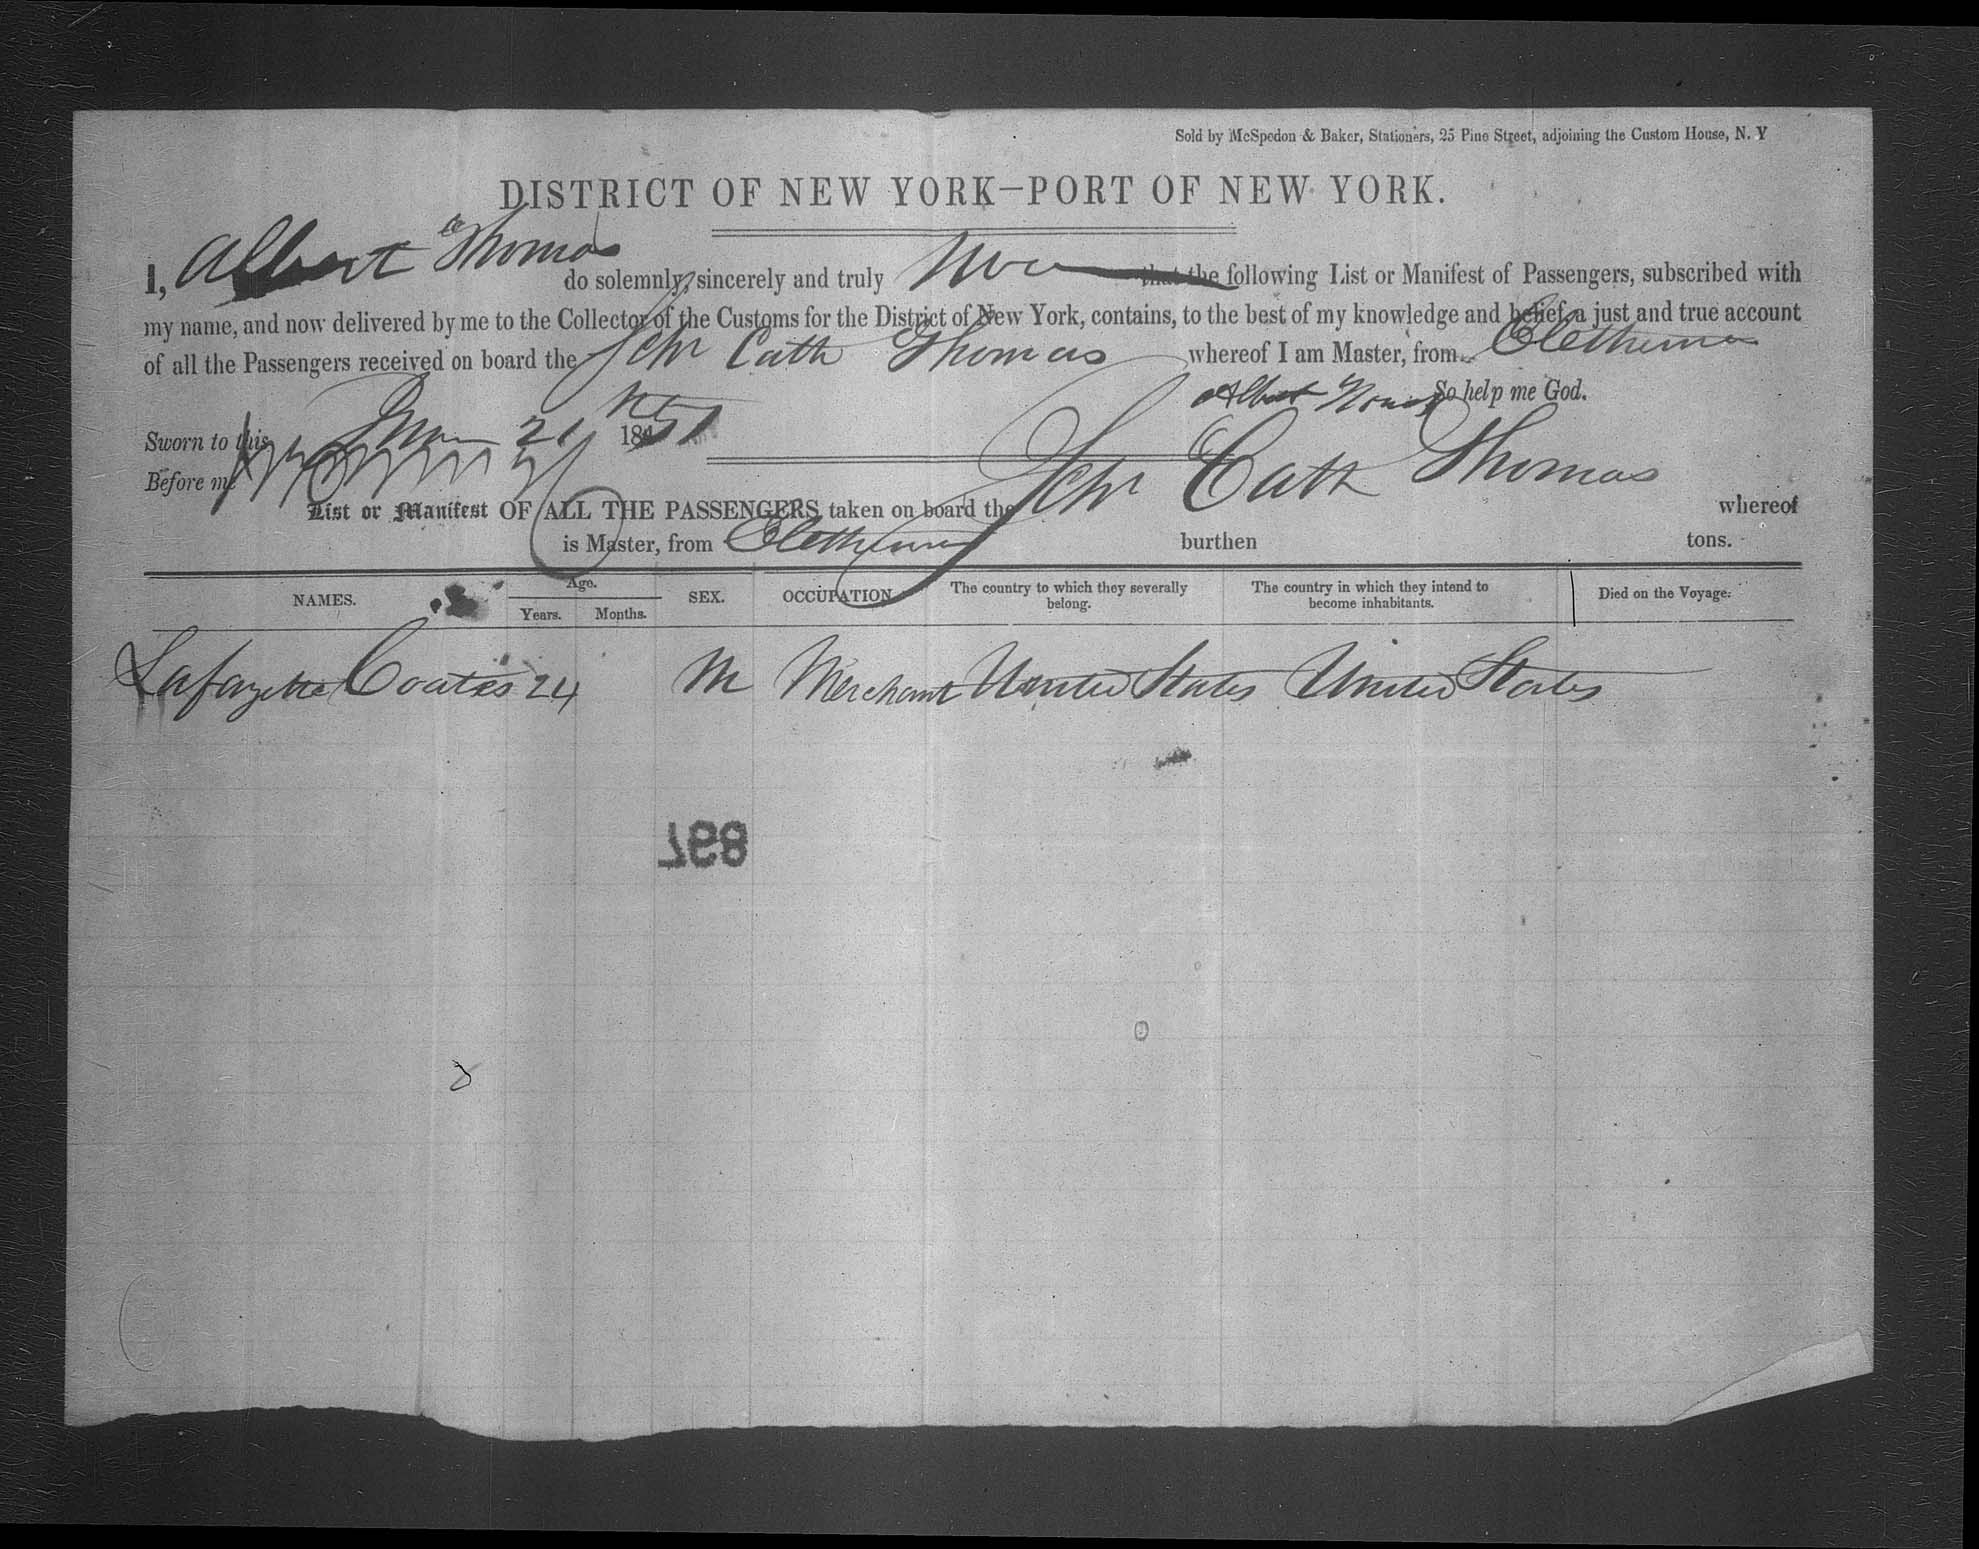 Sold by McSpedon & Baker, Stationers, 25 Pine Street, adjoining the Custom House, N. Y
DISTRICT OF NEW YORK—PORT OF NEW YORK.
I, Albert Thomas do solemnly, sincerely and truly that the following List or Manifest of Passengers, subscribed with
my name, and now delivered by me to the Collector of the Customs for the District of New York, contains, to the best of my knowledge and belief, a just and true account
of all the Passengers received on board the Schr Cath Thomas whereof I am Master, from Elethura
Albert Thomas So help me God.
Sworn to this 21 1851
Before me
List or Manifest OF ALL THE PASSENGERS taken on board the Schr Cath Thomas whereof
is Master, from Elethura burthen tons.
NAMES. Age. Years. Months. SEX. OCCUPATION The country to which they severally belong. The country in which they intend to become inhabitants. Died on the Voyage.
Lafayette Coates 24 M Merchant United States United States
897